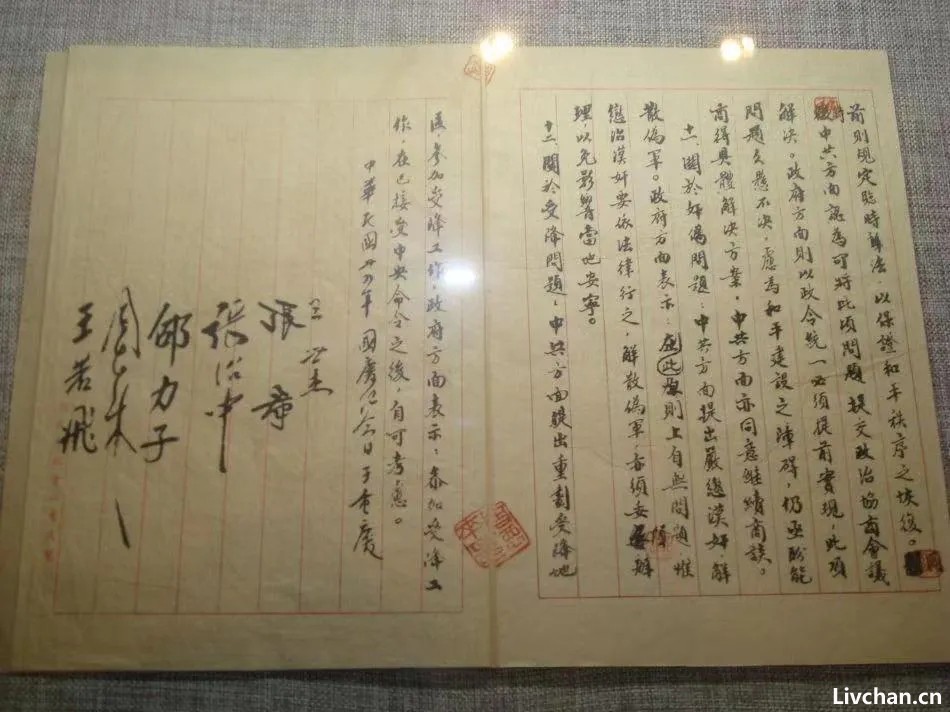 前則規定臨時辦法，以保證和平秩序之恢復。
中共方面認為可將此項問題提交政治協商會議
解決。政府方面則以政令統一必須提前實現，此項
問題久懸不決，慮為和平建設之障碍，仍亟盼能
商得具體解決方案。中共方面亦同意繼續商談。
十一、關於奸偽問題：中共方面提出嚴懲漢奸，解
散偽軍。政府方面表示：此在原則上自無問題，惟
懲治漢奸要依法律行之，解散偽軍亦須妥慎辦
理，以免影響當地安寧。
十二、關於受降問題，中共方面提出重劃受降地
區，參加受降工作，政府方面表示：參加受降工
作，在已接受中央命令之後，自可考慮。
中華民國卅四年國慶紀念日于重慶
王世杰
張羣
張治中
邵力子
周恩來
王若飛
Livchan.cn